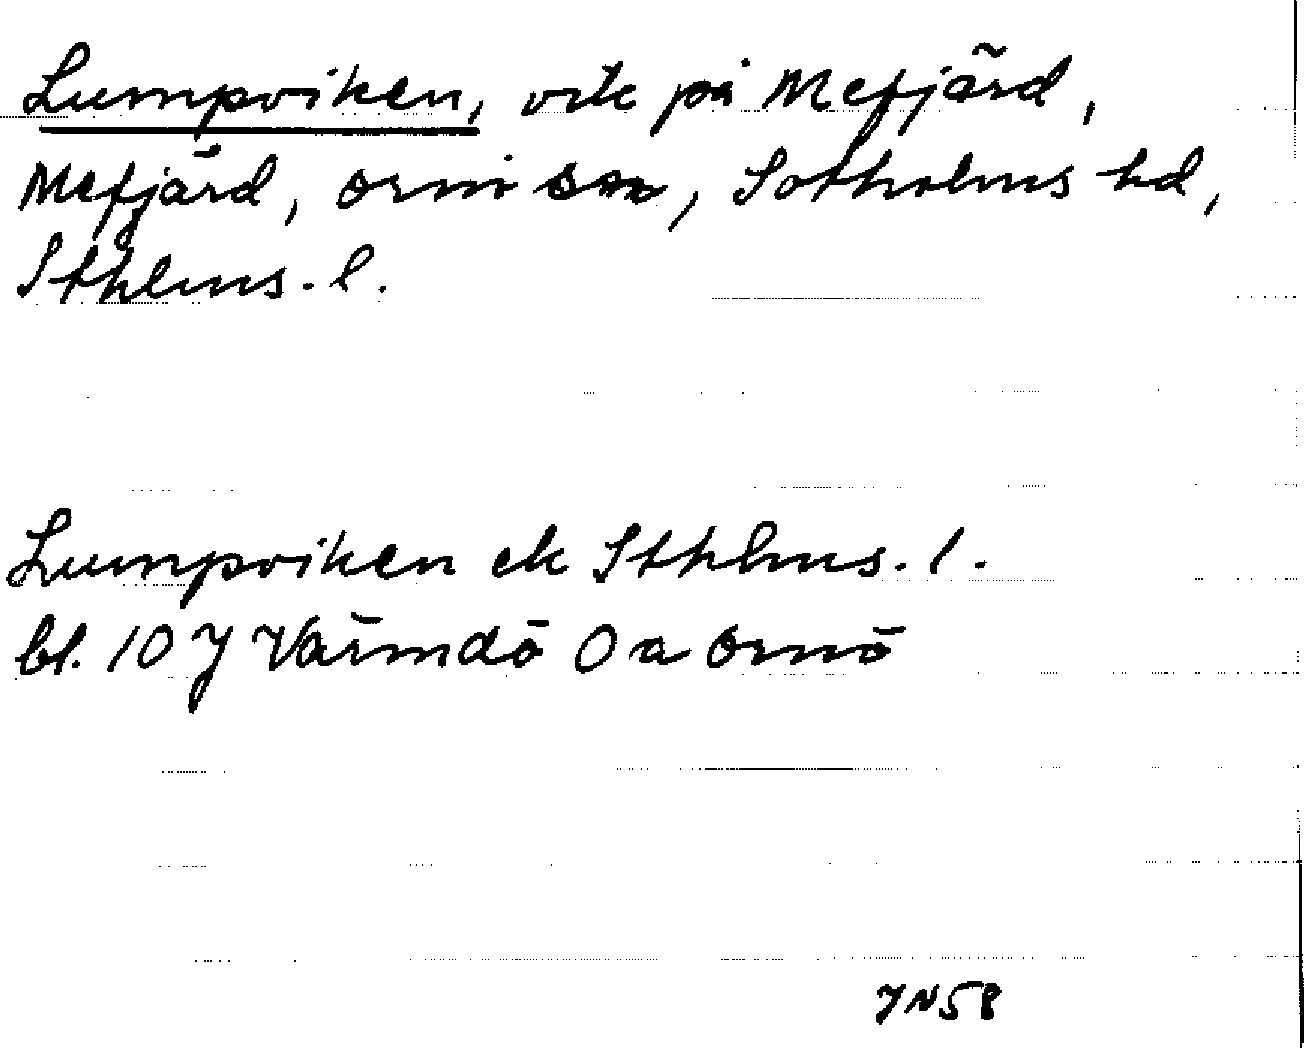 Lumpviken, vik på Mefjärd,
Mefjärd, Ornö sn, Sotholms hd,
Sthlms. l.
Lumpviken ek Sthlms. l.
bl. 10 J Värmdö O a Ornö
JN58